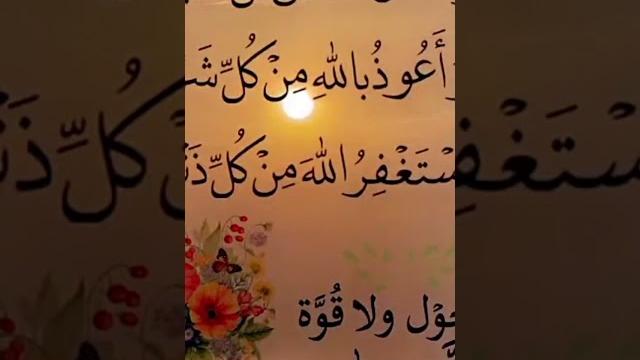 أَعُوذُ بالله مِنْ كُلِّ شَـ
ـسْتَغْفِرُ اللهَ مِنْ كُلِّ ذَنْـ
حَوْل ولا قُوَّة